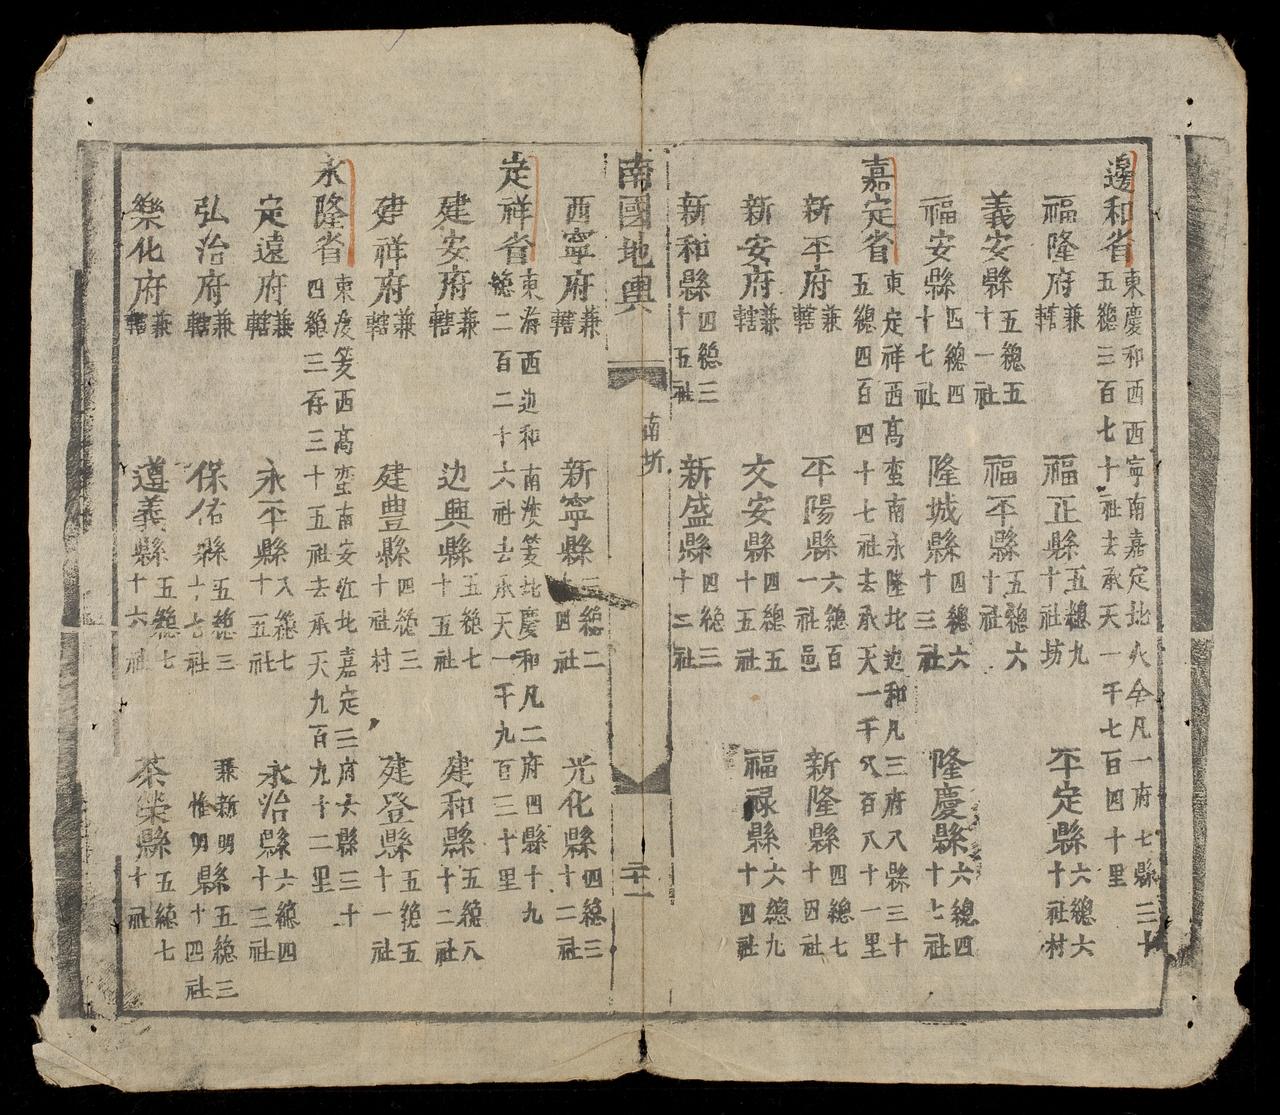 邊和省東慶和西西寧南嘉定北火傘凡一府七縣三十
五總三百七十社去承天一千七百四十里
福隆府兼轄 福正縣五總九十社坊 平定縣六總六十社村
義安縣五總五十一社 福平縣五總六十社
福安縣四總四十七社 隆城縣四總六十三社 隆慶縣六總四十七社
嘉定省東定祥西高蛮南永隆北边和凡三府八縣三十
五總四百四十七社去承天一千八百八十一里
新平府兼轄 平陽縣六總百一社邑 新隆縣四總七十四社
新安府兼轄 文安縣四總五十五社 福禄縣六總九十四社
新和縣四總三十五社 新盛縣四總三十二社
南國地輿 南圻 二十一
西寧府兼轄 新寧縣三總二十四社 光化縣四總三十二社
定祥省東海西边和南濱北慶和凡二府四縣十九
總二百二十六社去承天一千九百三十里
建安府兼轄 边興縣五總七十五社 建和縣五總八十二社
建祥府兼轄 建豊縣四總三十社村 建登縣五總五十一社
永隆省東西高蛮南安江北嘉定三府六縣三十
四總三百三十五社去承天九百九十二里
定遠府兼轄 永平縣八總七十五社 永治縣六總四十三社
弘治府兼轄 保佑縣五總三十七社 兼新明惟明縣五總三十四社
樂化府兼轄 遵義縣五總七十六社 茶榮縣五總七十社